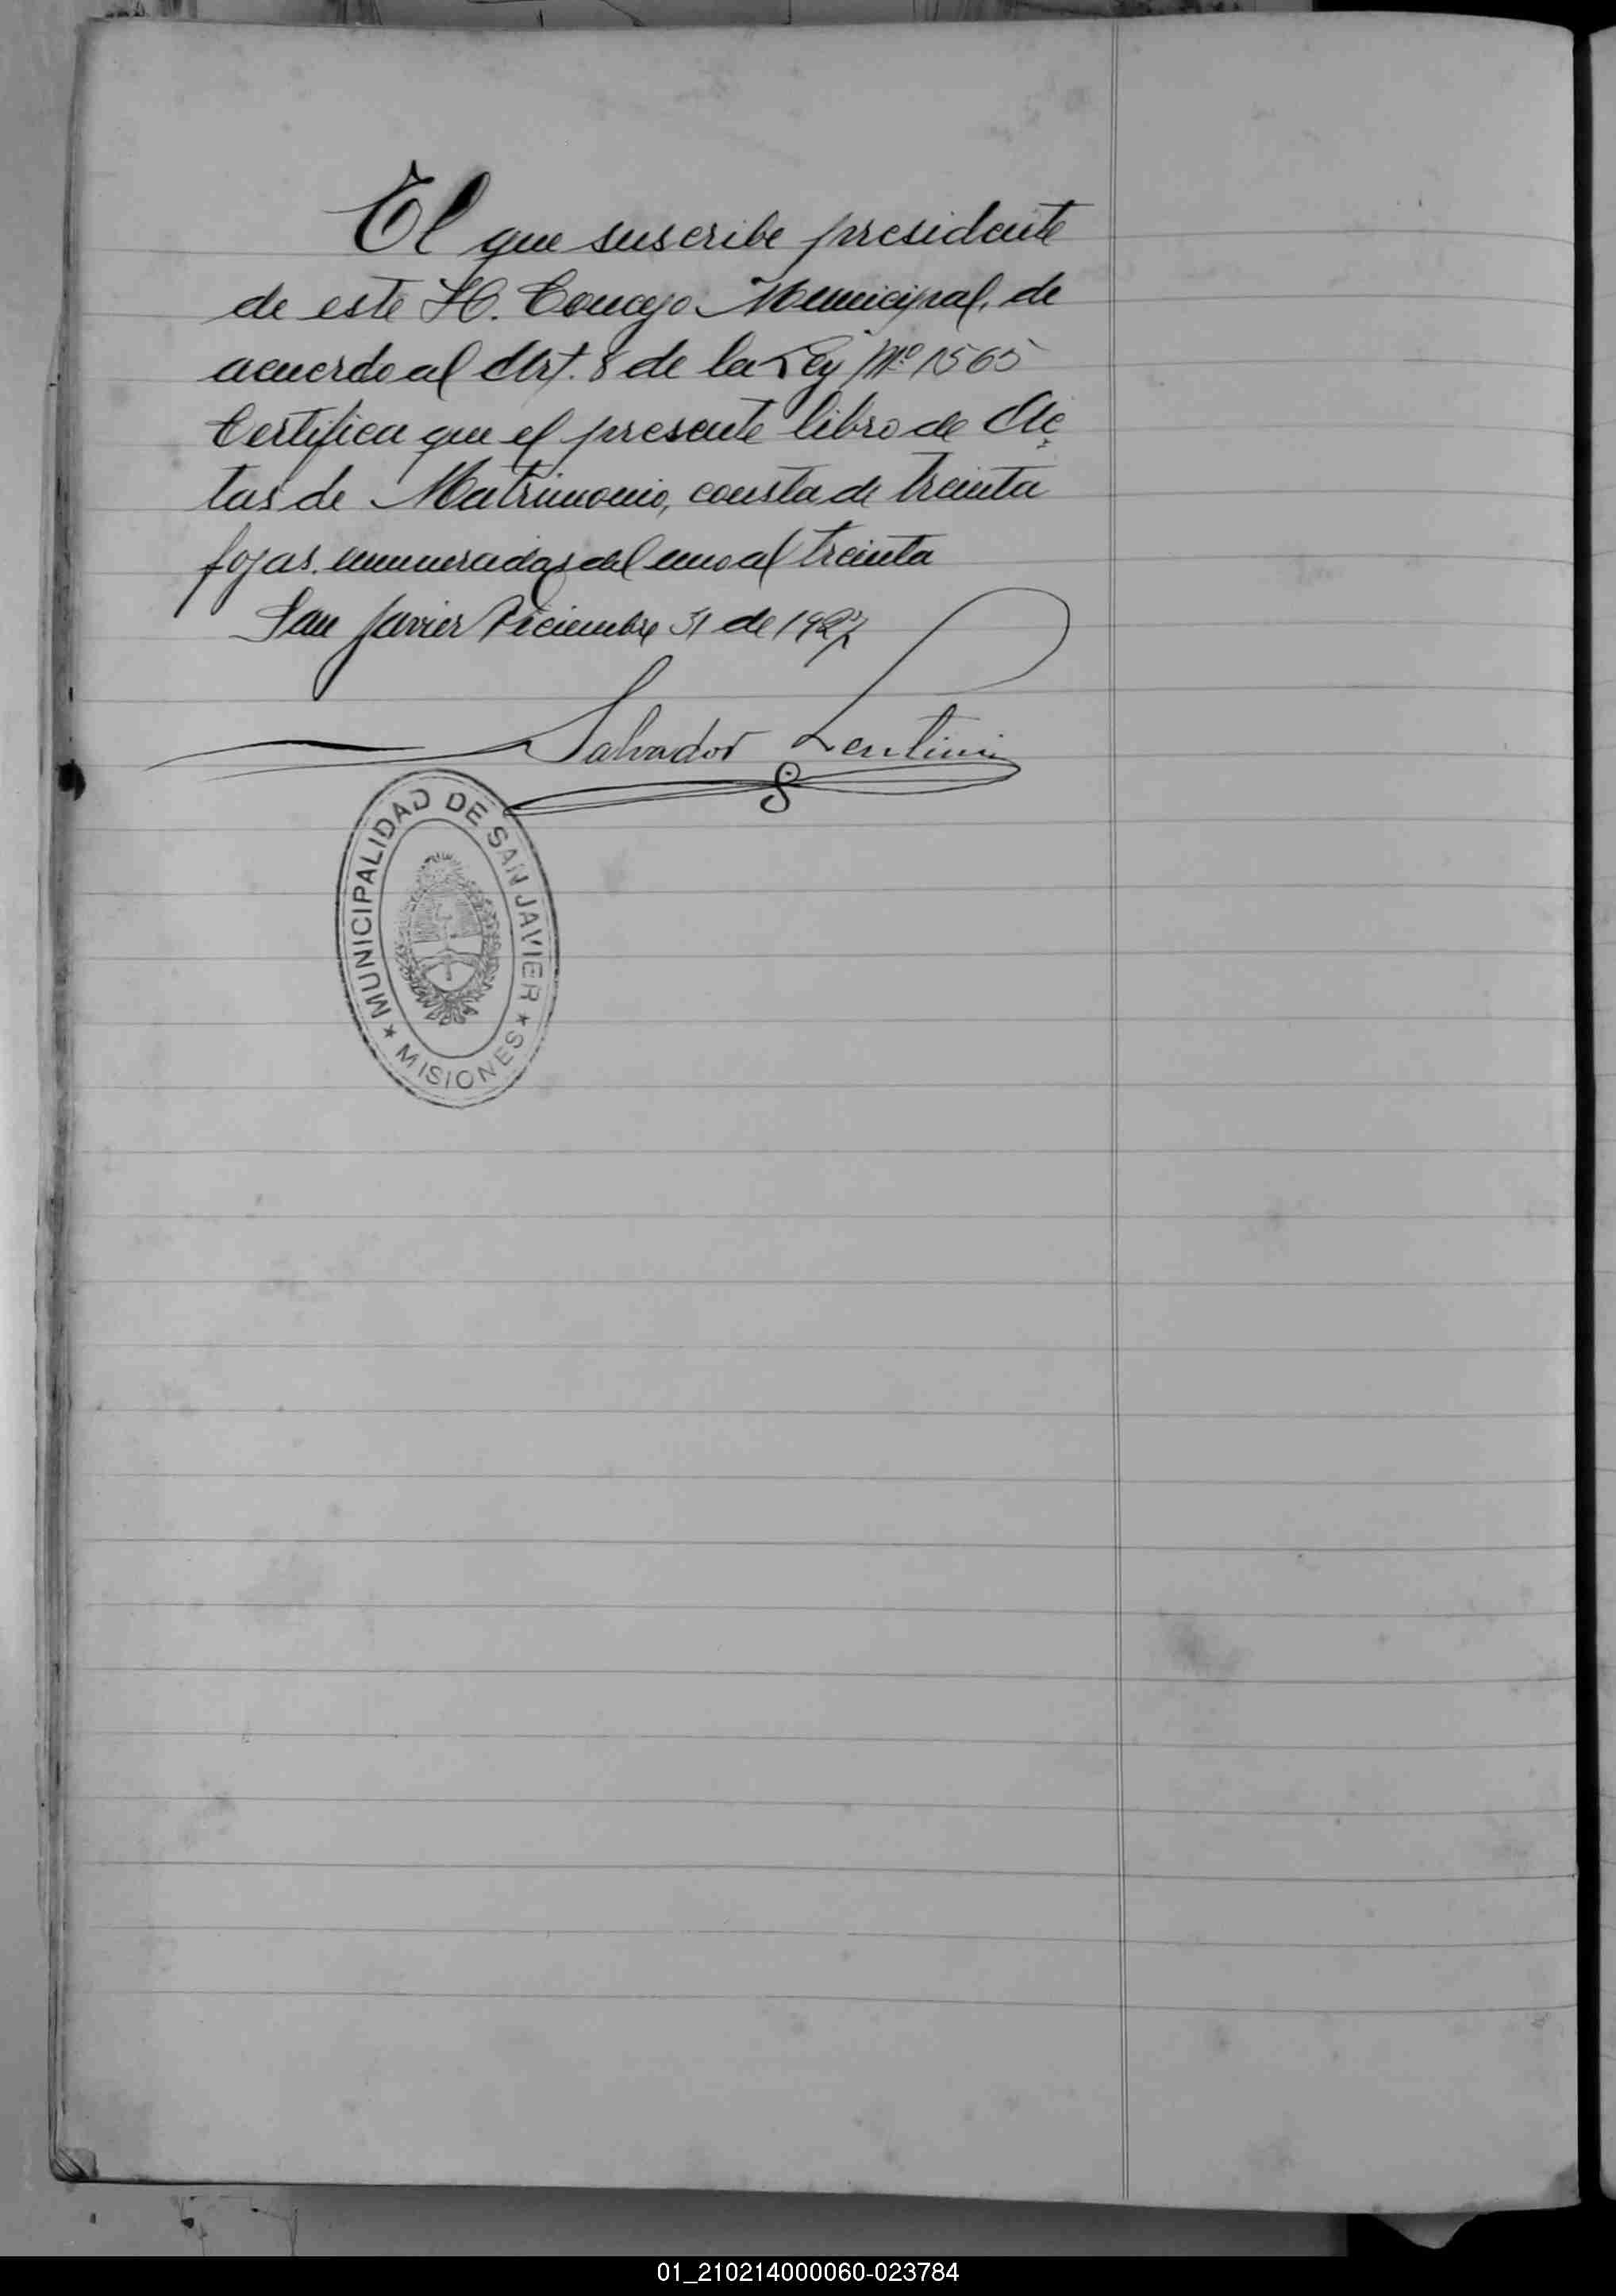 El que suscribe presidente
de este H. Concejo Municipal, de
acuerdo al Art. 8 de la Ley Nº 1565
Certifica que el presente libro de Ac
tas de Matrimonio, consta de treinta
fojas. enumeradas del uno al treinta
San Javier Diciembre 31 de 1927
Salvador Lentini
MUNICIPALIDAD DE SAN JAVIER
★ MISIONES ★
01_210214000060-023784